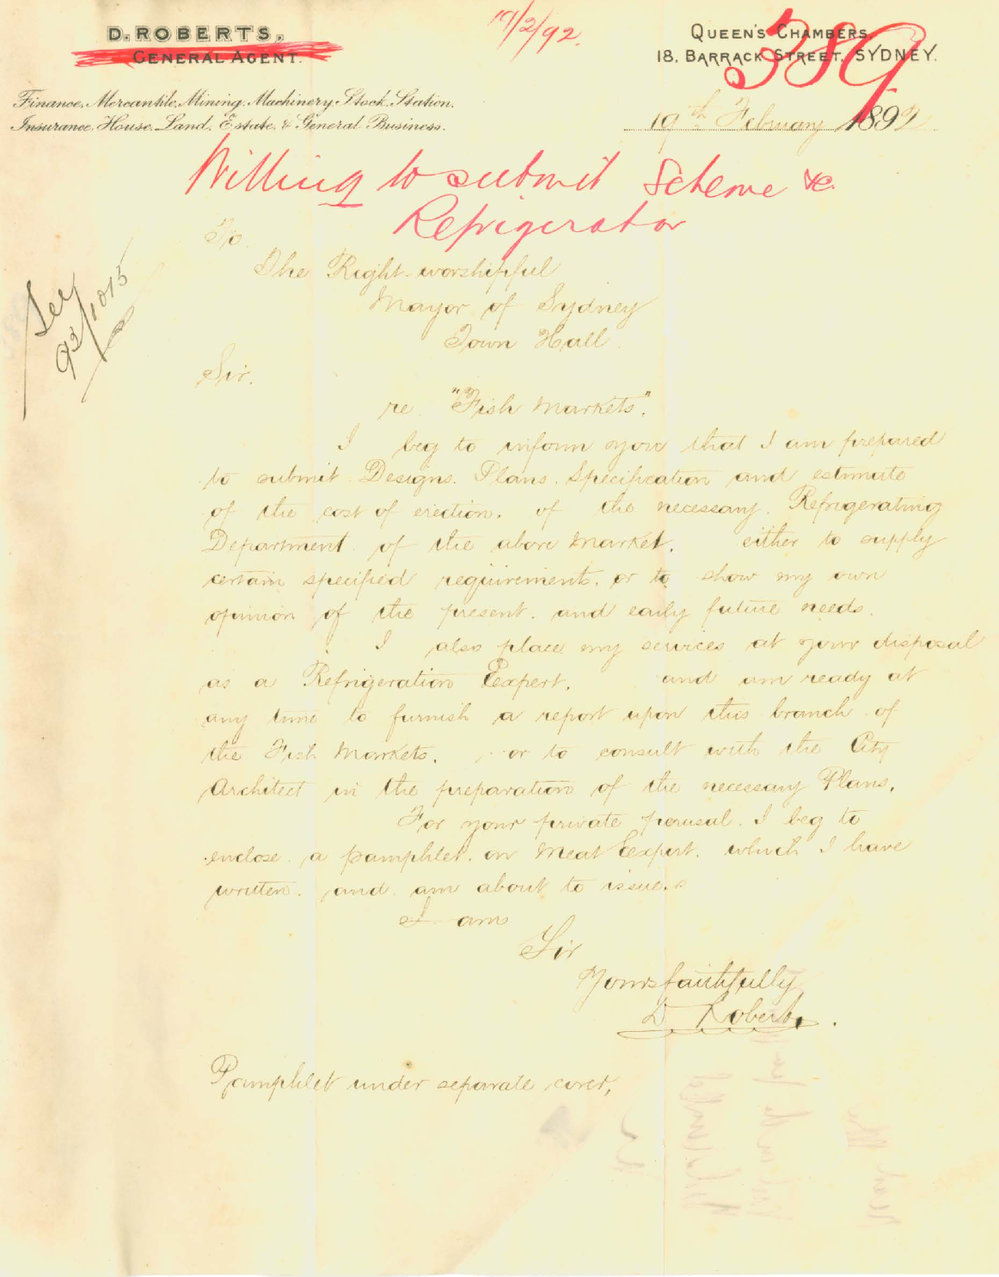 D. ROBERTS,
GENERAL AGENT.
Finance, Mercantile, Mining, Machinery, Stock, Station,
Insurance, House, Land, Estate, & General Business.
19/2/92.
QUEEN'S CHAMBERS,
18, BARRACK STREET, SYDNEY.
389
19th February 1892
Willing to submit Scheme &c.
Refrigerator
See
92/1015
To
The Right worshipful
Mayor of Sydney
Town Hall.
Sir.
re. "Fish Markets".
I beg to inform you that I am prepared
to submit Designs. Plans. Specification and estimate
of the cost of erection. of the necessary. Refrigerating
Department of the above Market. either to supply
certain specified requirements. or to show my own
opinion of the present. and early future needs.
I also place my services at your disposal
as a Refrigeration Expert. and am ready at
any time to furnish a report upon this branch of
the Fish Markets. or to consult with the City
Architect in the preparation of the necessary Plans.
For your private perusal. I beg to
enclose. a pamphlet. on Meat Export. which I have
written. and am about to issue.
I am
Sir
Yours faithfully
D Roberts.
Pamphlet under separate cover,